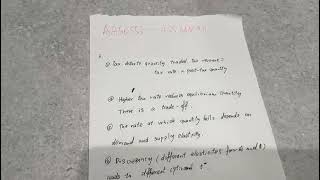 ① Tax debate quantity traded, tax revenue =
tax rate × post-tax quantity
② Higher tax rate reduces equilibrium quantity
There is a trade-off.
③ The rate at which quantity falls depends on
demand and supply elasticity
④ Discrepancy (different elasticities for and)
leads to different optimal